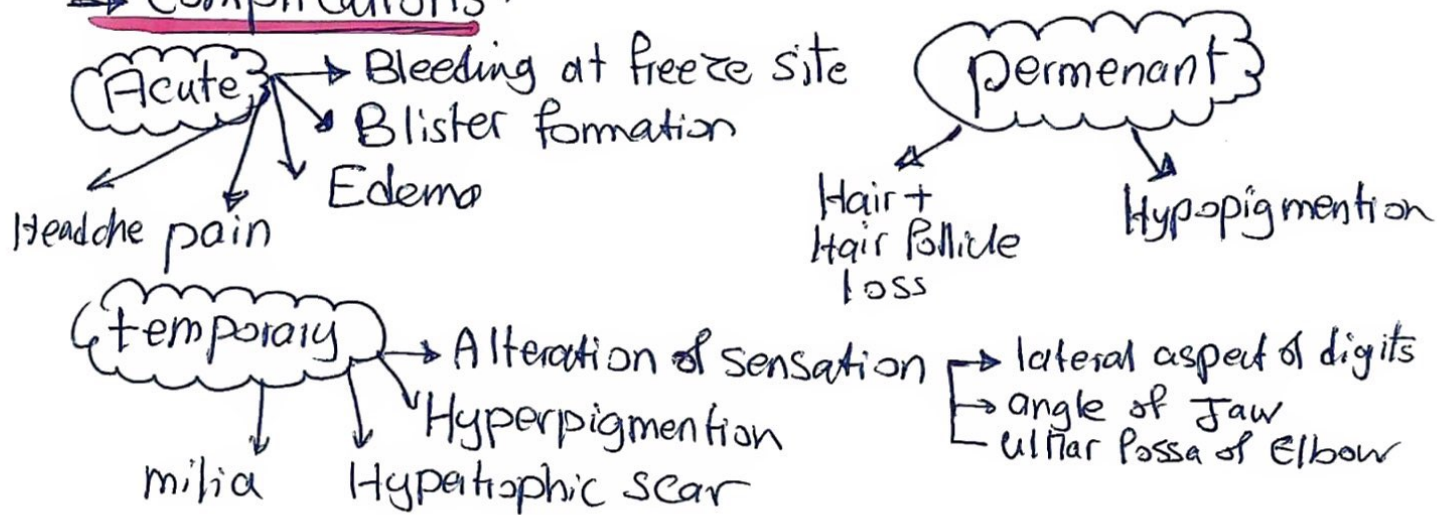 Complications
Acute
Bleeding at freeze site
Blister formation
Edema
Headche
pain
permenant
Hair +
Hair follicle
loss
Hypopigmention
temporary
Alteration of sensation
lateral aspect of digits
angle of Jaw
ulnar fossa of Elbow
Hyperpigmention
Hypertrophic scar
milia